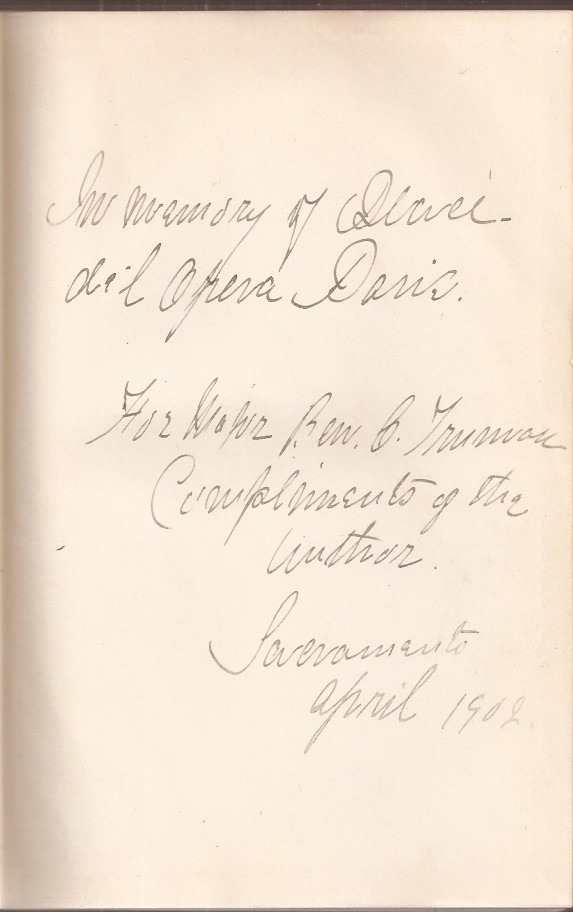 In memory of
Opera
For Major Ben. C. Truman
Compliments of the
Author.
Sacramento
April 1902.